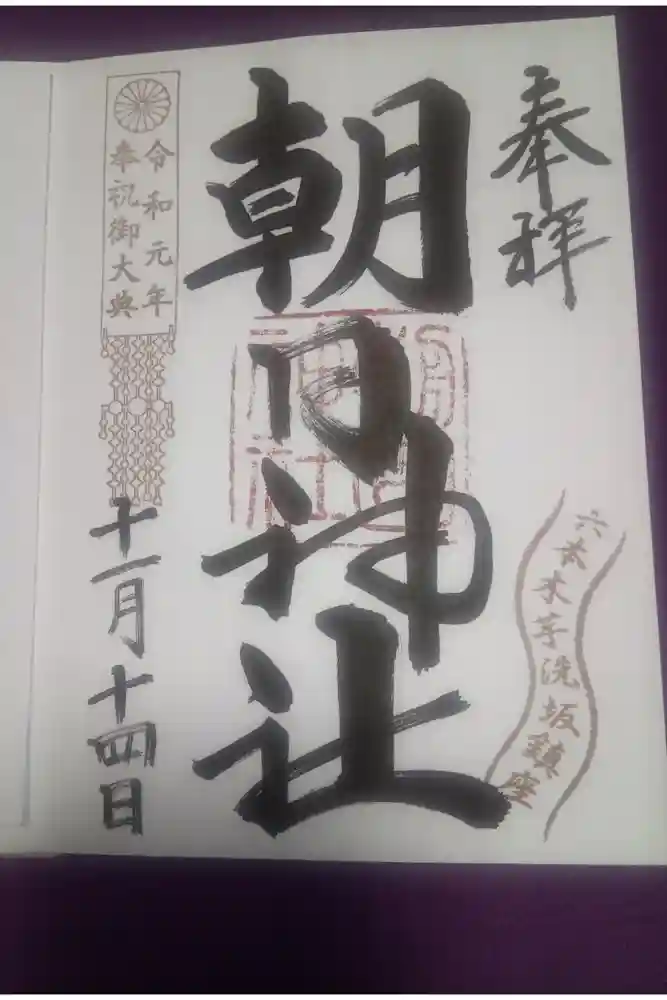 奉拝
六本木芋洗坂鎮座
朝日神社
令和元年
奉祝御大典
十一月十四日